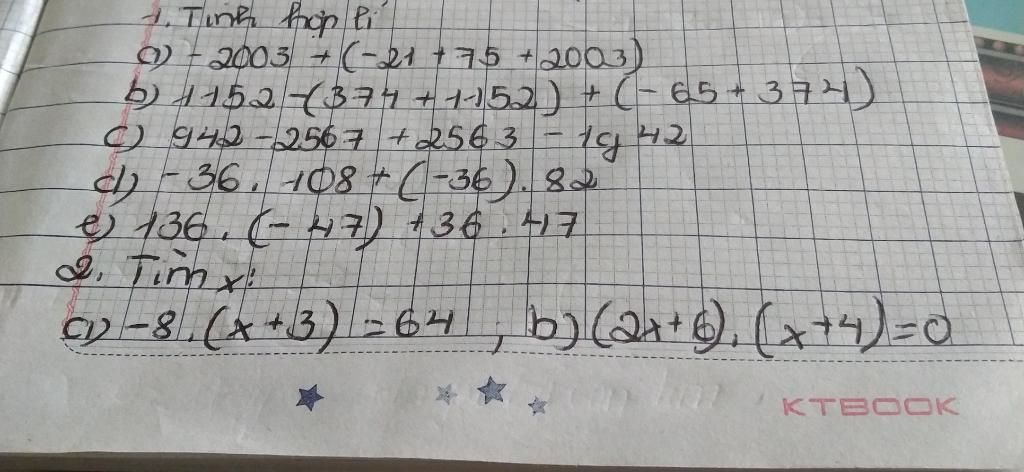 1. Tính hợp lí
a) -2003 + (-21 + 75 + 2003)
b) 1152 - (374 + 1152) + (-65 + 374)
c) 942 - 2567 + 2563 - 1942
d) -36. 108 + (-36). 82
e) 136. (-47) + 36. 47
2. Tìm x:
a) -8. (x + 3) = 64 ; b) (2x + 6). (x + 4) = 0
KTBOOK